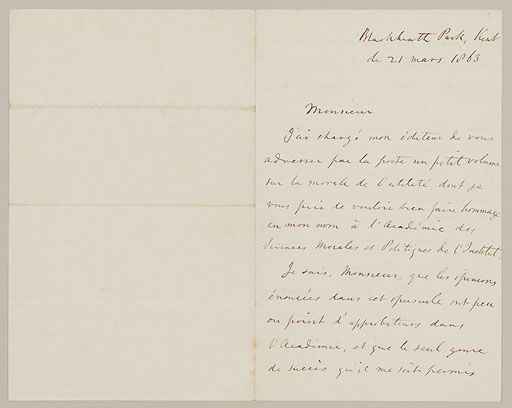 Blackheath Park, Kent
le 21 mars 1863
Monsieur
J'ai chargé mon éditeur de vous
adresser par la poste un petit volume
sur la morale de l'utilité dont je
vous prie de vouloir bien faire hommage
en mon nom à l'Académie des
Sciences Morales et Politiques de l'Institut.
Je sais, Monsieur, que les opinions
énoncées dans cet opuscule ont peu
ou point d'approbateurs dans
l'Académie, et que le seul genre
de succès qu'il me soit permis